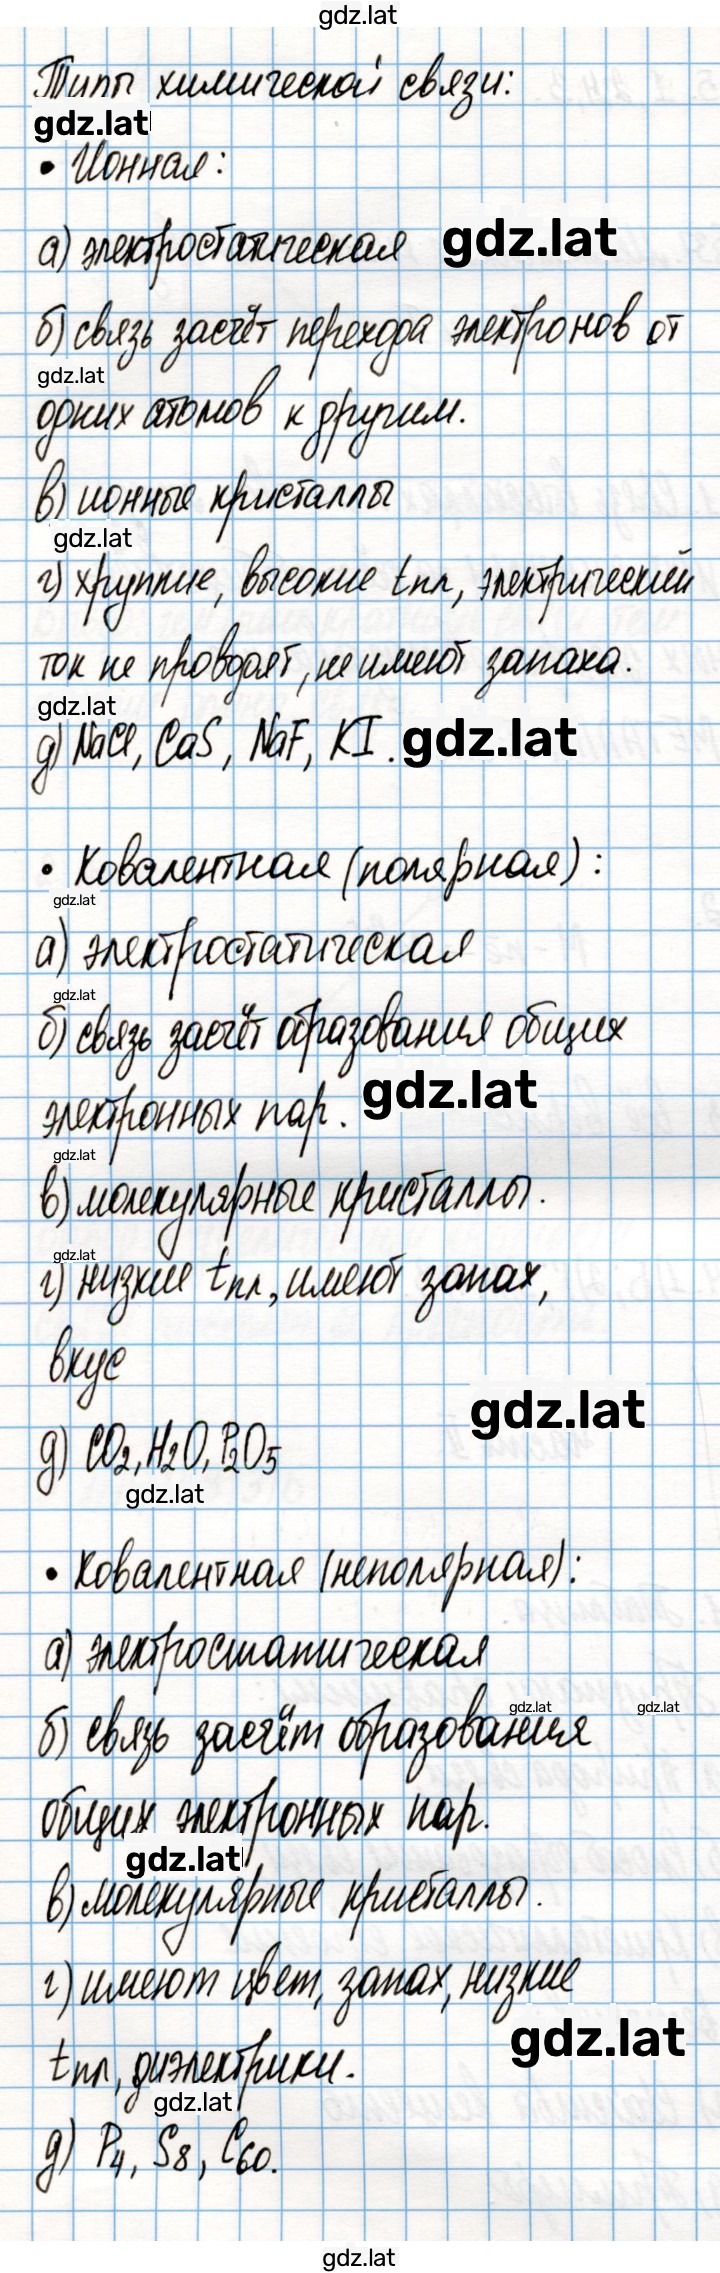 gdz.lat
Типы химической связи:
gdz.lat
• Ионная:
а) электростатическая gdz.lat
б) связь засчёт перехода электронов от
gdz.lat
одних атомов к другим.
в) ионные кристаллы
gdz.lat
г) хрупкие, высокие tпл, электрический
ток не проводят, не имеют запаха.
gdz.lat
д) NaCl, CaS, NaF, KI. gdz.lat
• Ковалентная (полярная):
gdz.lat
а) электростатическая
gdz.lat
б) связь засчёт образования общих
электронных пар. gdz.lat
gdz.lat
в) молекулярные кристаллы.
gdz.lat
г) низкие tпл, имеют запах,
вкус
gdz.lat
д) CO2, H2O, P2O5
gdz.lat
• Ковалентная (неполярная):
а) электростатическая
gdz.lat gdz.lat
б) связь засчёт образования
общих электронных пар.
gdz.lat
в) молекулярные кристаллы.
г) имеют цвет, запах, низкие
gdz.lat
tпл, диэлектрики.
gdz.lat
д) P4, S8, C60.
gdz.lat